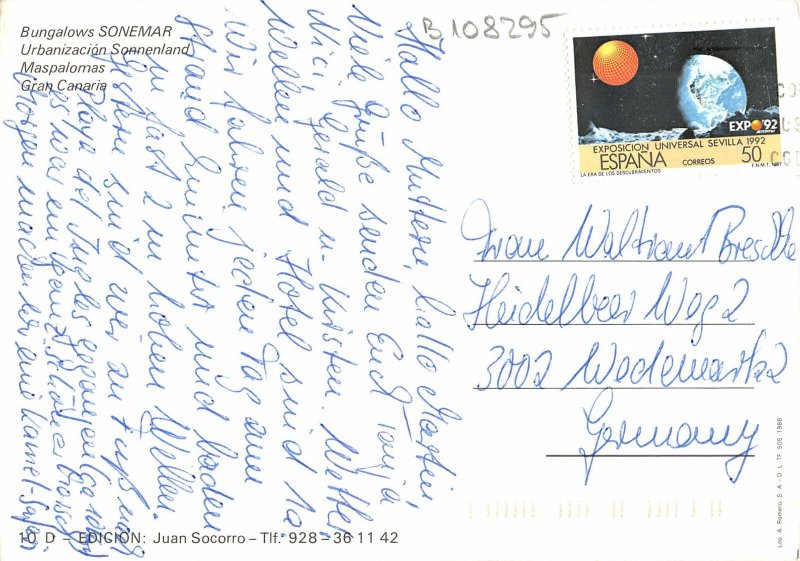 Bungalows SONEMAR
Urbanización Sonnenland
Maspalomas
Gran Canaria
B 108295
EXPO'92
EXPOSICION UNIVERSAL SEVILLA 1992
ESPAÑA CORREOS 50
LA ERA DE LOS DESCUBRIMIENTOS F.N.M.T. 1987
Hallo Muttern, hallo Martin,
Viele Grüße senden Euch Tanja,
Nici, Gerald u. Kirsten. Wetter,
Wellen und Hotel sind 1a
Wir fahren jeden Tag zum
Strand hinunter und baden
in fast 2 m hohen Wellen.
Gestern sind wir zu Fuß nach
Playa del Ingles gegangen
es war ein
Morgen machen wir eine Kamel-Safari
Frau Waltraut
Heidelbeer Weg 2
3002 Wedemark 2
Germany
10 D – EDICION: Juan Socorro – Tlf. 928 – 36 11 42
Lit. A. Romero, S. A. - D. L. TF. 505 - 1988